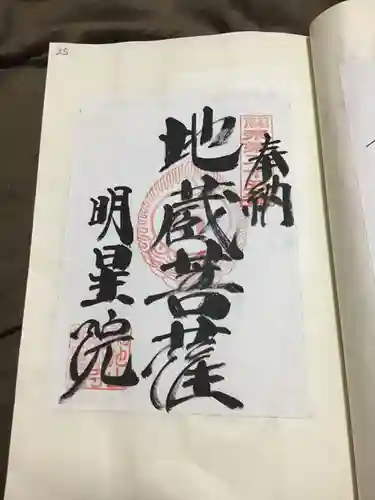 25
奉納
地蔵菩薩
明星院